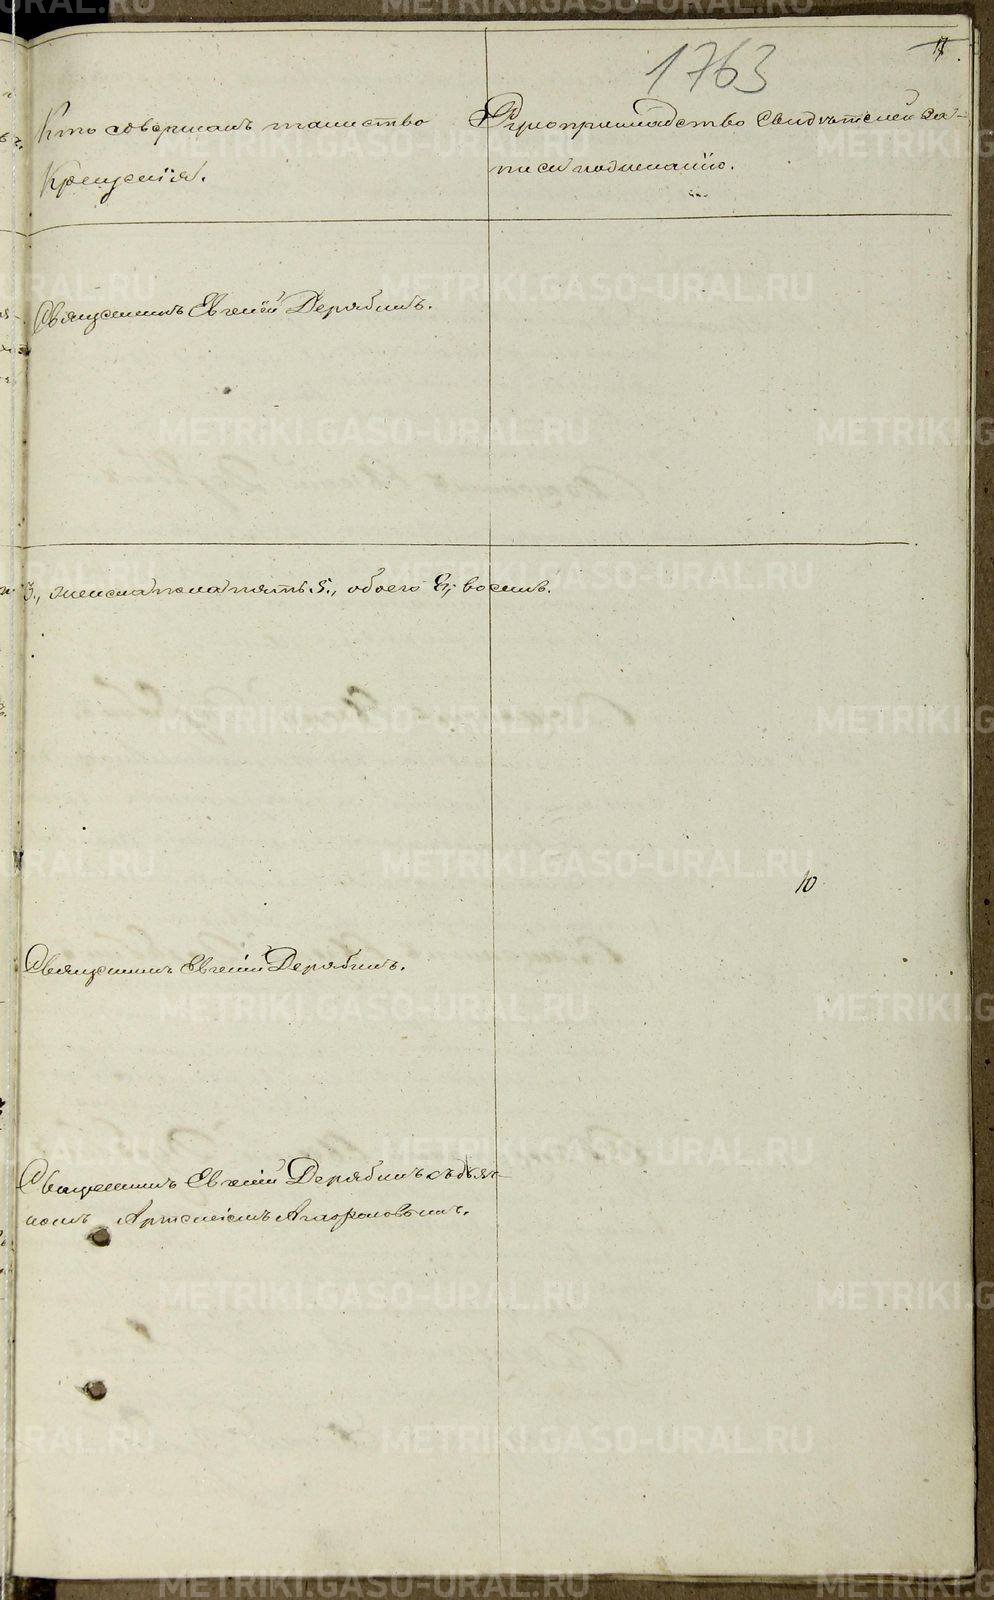 1763
Кто совершалъ таинство
Крещенія.
Рукоприкладство свидѣтелей за-
писи по желанію.
Священникъ Евгеній Дерябинъ.
3., женска пола пять 5., обоего 8, восемь.
10
Священникъ Евгеній Дерябинъ.
Священникъ Евгеній Дерябинъ съ дья-
кономъ Артеміемъ
METRIKI.GASO-URAL.RU